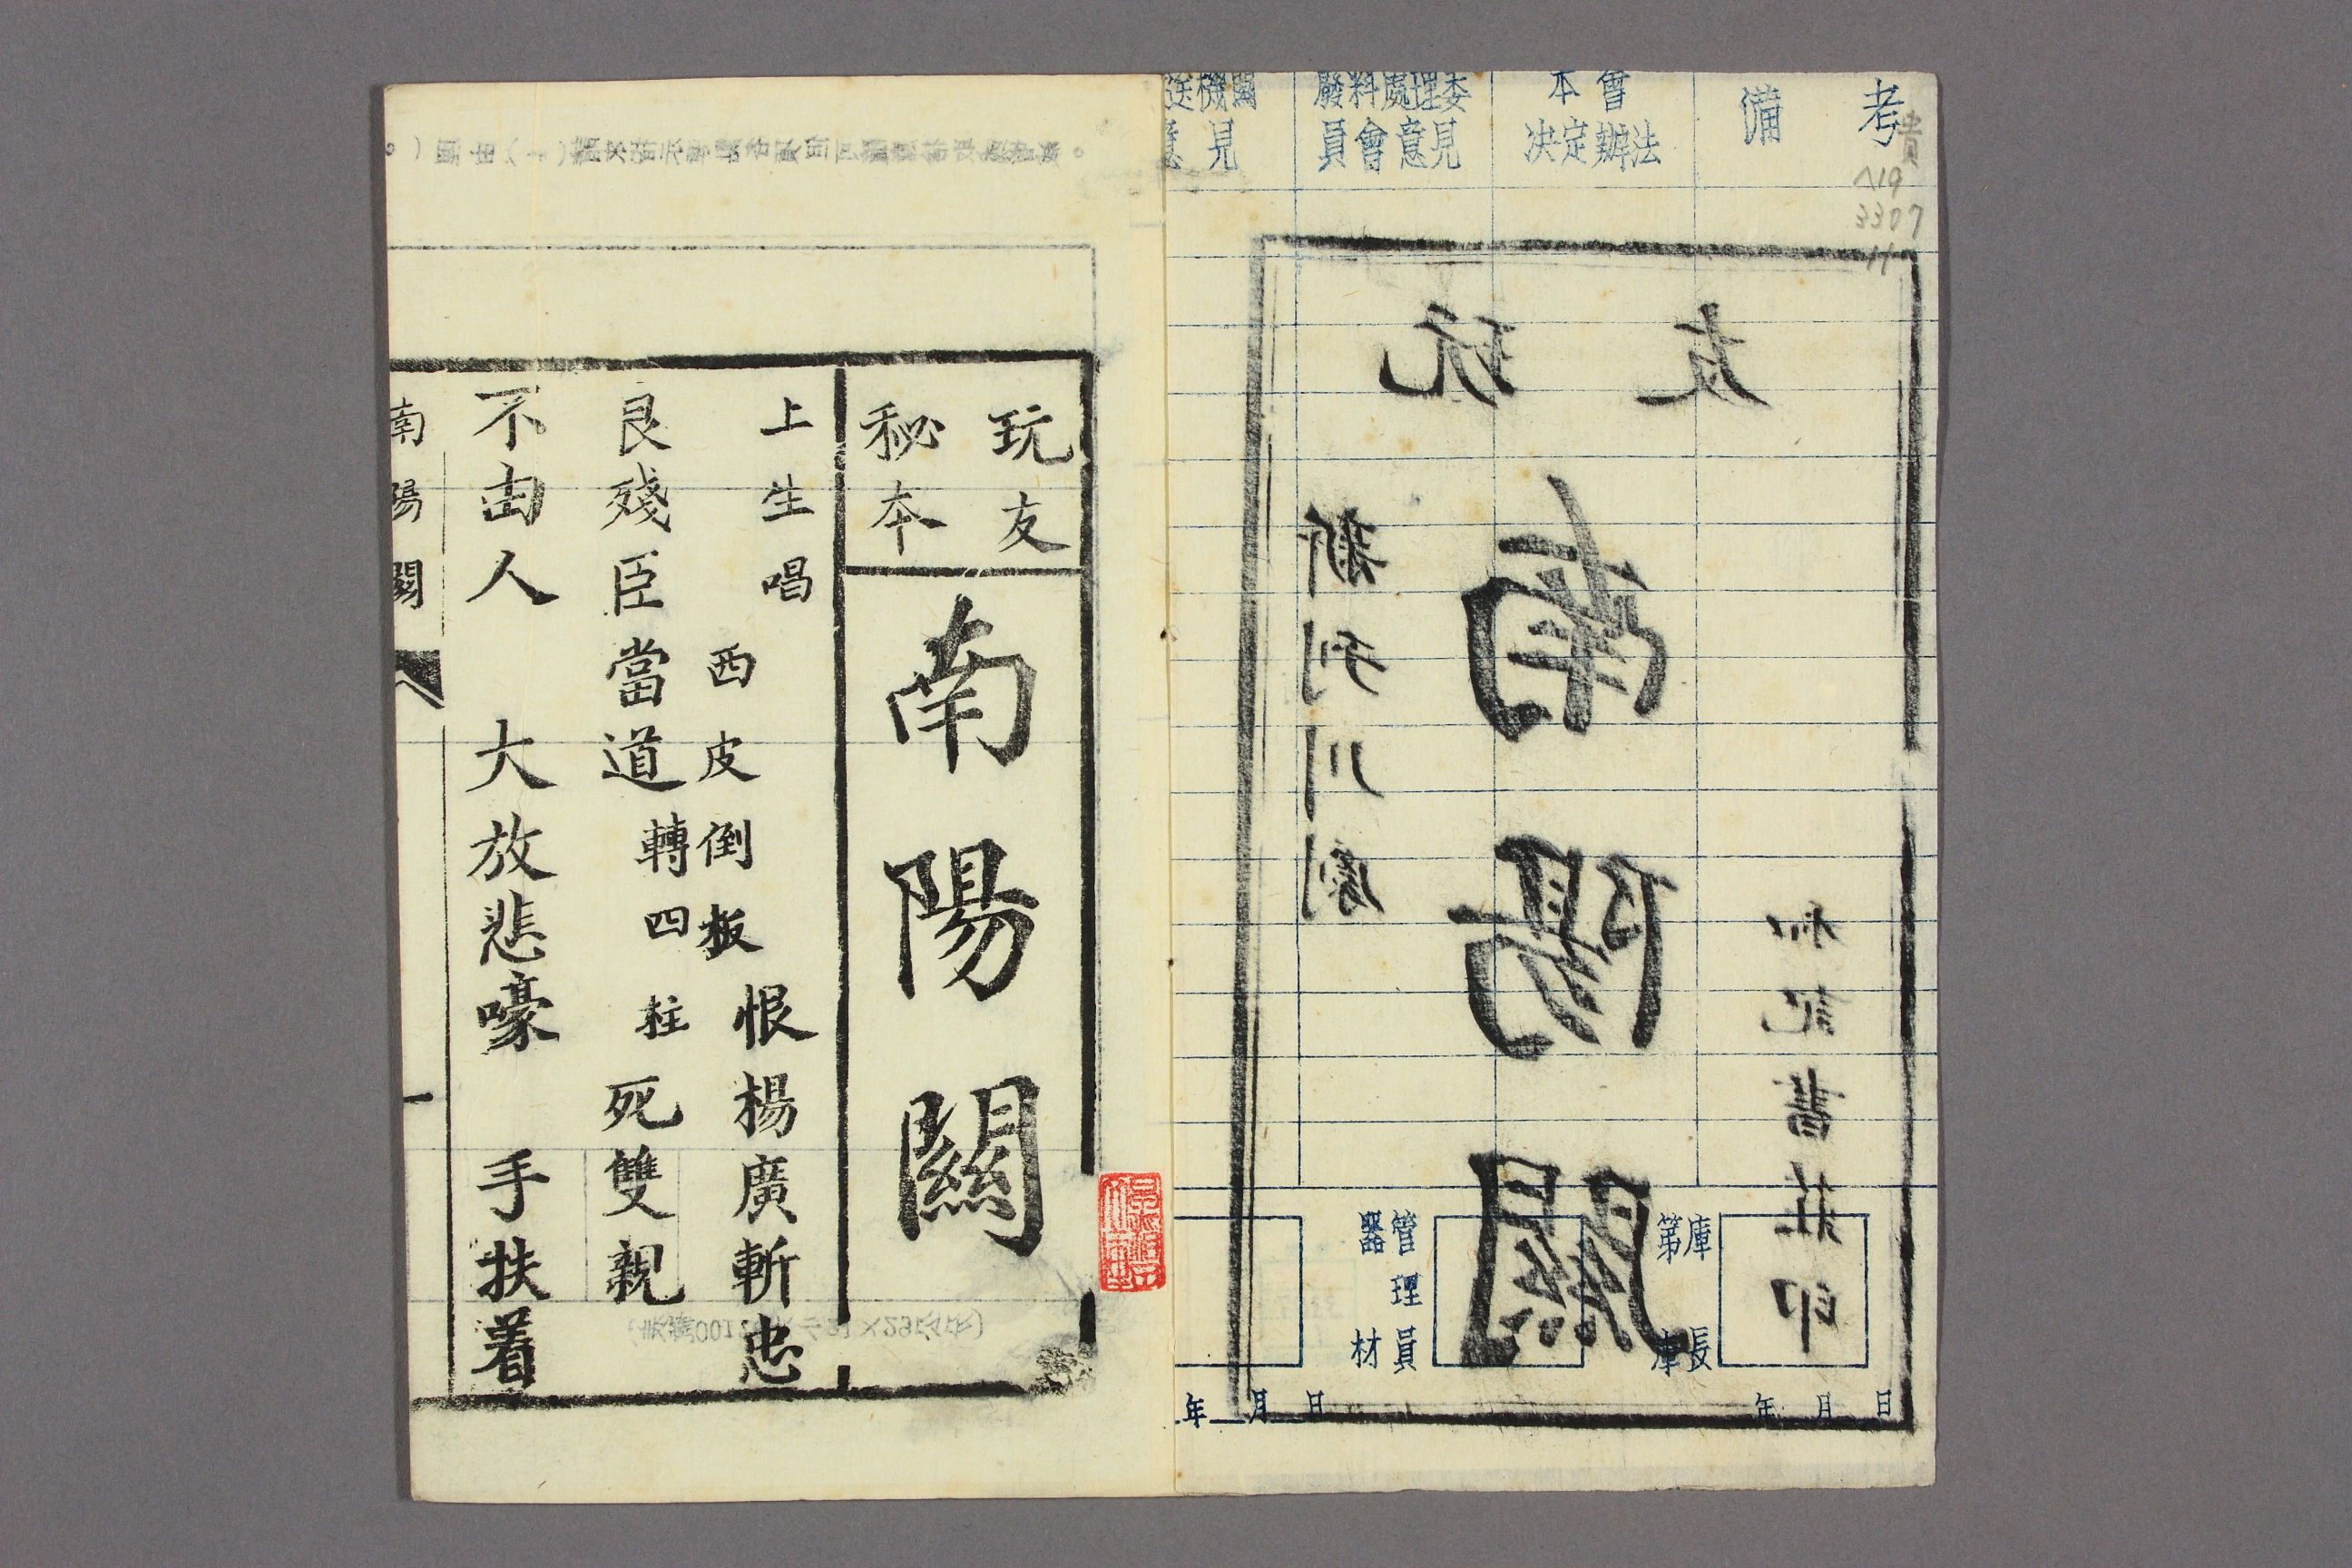 備考
本會
决定辦法
廢料處理委
員會意見
送機關
意見
貴
へ19
3307
11
友玩
和記書莊印
南陽關
新刋川劇
庫
第
庫長
管理員
器材
年月日
年月日
玩友
秘本
南陽關
上生唱 西皮倒板 恨楊廣斬忠
良殘臣當道 轉四柱 死雙親
不由人 大放悲嚎 手扶着
南陽關
一